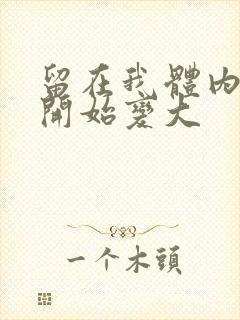 留在我體內
開始變大
一个木頭